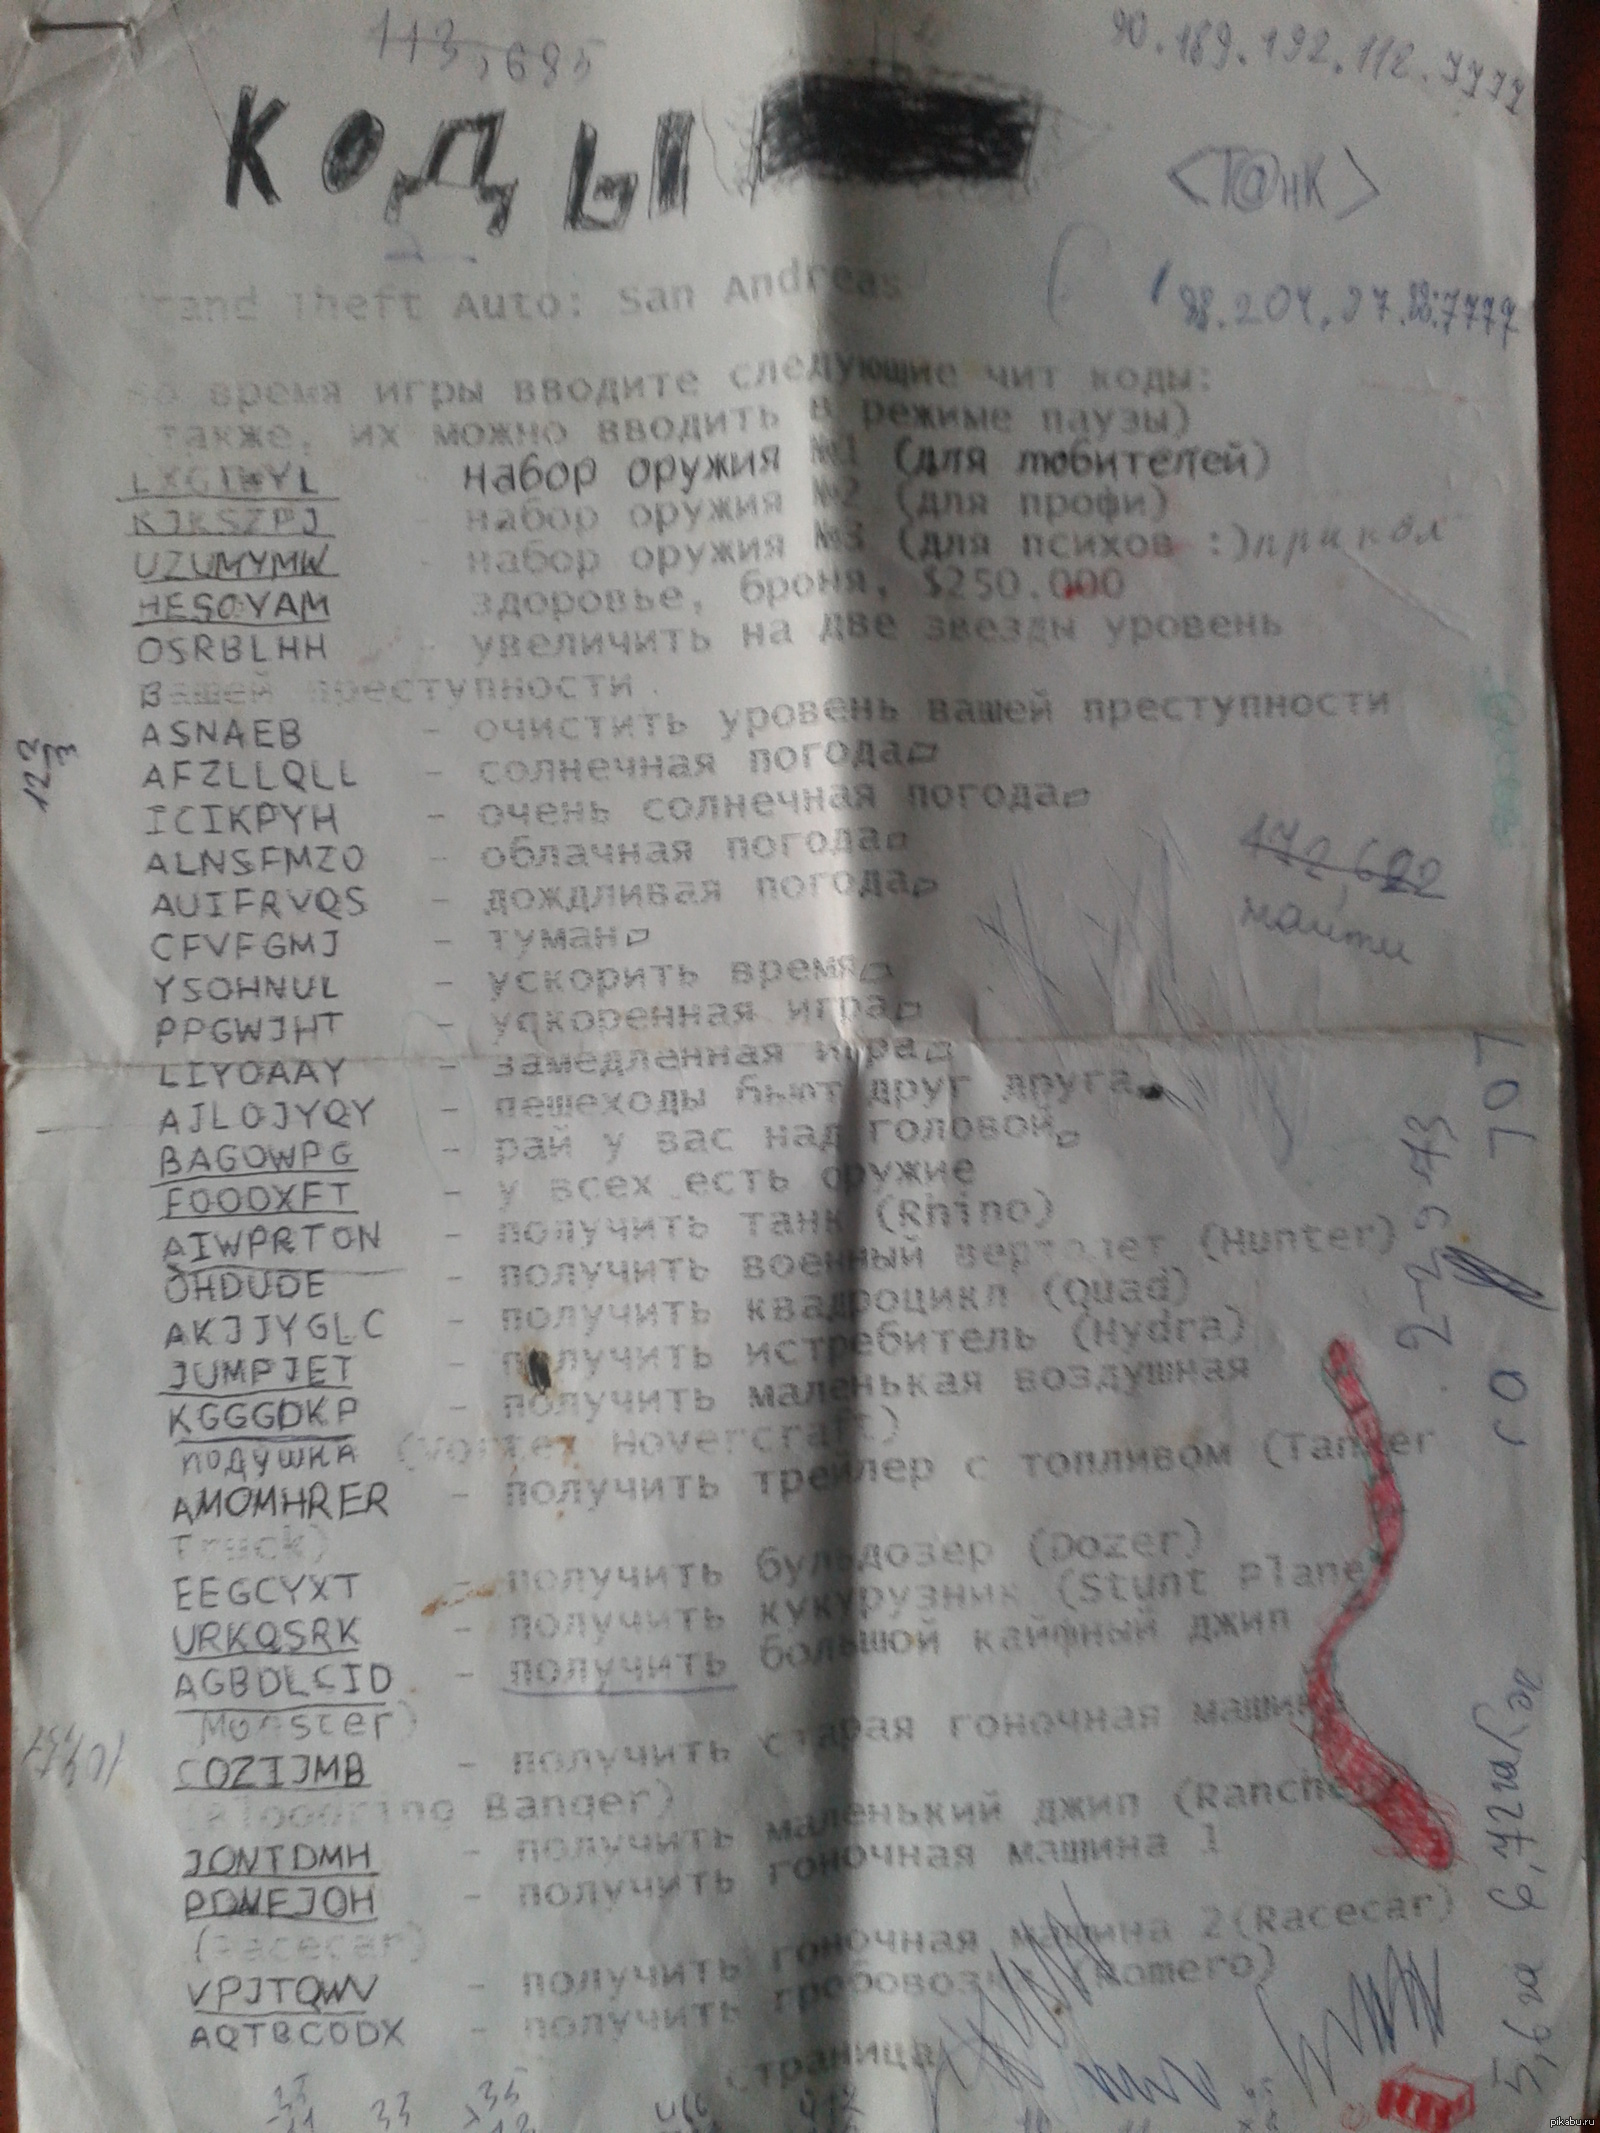 113,685
90.189.192.112.7777
КОДЫ
<Т@нК>
Grand Theft Auto: San Andreas
198.204.27.88:7777
Во время игры вводите следующие чит коды:
также, их можно вводить в режиме паузы)
LXGIWYL - набор оружия №1 (для любителей)
KJKSZPJ - набор оружия №2 (для профи)
UZUMYMW - набор оружия №3 (для психов :) прикол
HESOYAM - здоровье, броня, $250.000
OSRBLHH - увеличить на две звезды уровень
вашей преступности.
ASNAEB - очистить уровень вашей преступности
AFZLLQLL - солнечная погода
ICIKPYH - очень солнечная погода
ALNSFMZO - облачная погода
AUIFRVQS - дождливая погода
CFVFGMJ - туман
YSOHNUL - ускорить время
PPGWJHT - ускоренная игра
LIYOAAY - замедленная игра
AJLOJYQY - пешеходы бьют друг друга
BAGOWPG - рай у вас над головой
FOOOXFT - у всех есть оружие
AIWPRTON - получить танк (Rhino)
OHDUDE - получить военный вертолет (Hunter)
AKJJYGLC - получить квадроцикл (Quad)
JUMPJET - получить истребитель (Hydra)
KGGGDKP - получить маленькая воздушная
подушка (Vortex Hovercraft)
AMOMHRER - получить трейлер с топливом (Tanker
Truck)
EEGCYXT - получить бульдозер (Dozer)
URKQSRK - получить кукурузник (Stunt Plane)
AGBDLCID - получить большой кайфный джип
Monster)
COZIJMB - получить старая гоночная машина
(Bloodring Banger)
JONTDMH - получить маленький джип (Rancher)
PDNEJOH - получить гоночная машина 1
(Racecar)
VPJTQWV - получить гоночная машина 2(Racecar)
AQTBCODX - получить гробовозка (Romero)
страница
122
3
172,622
найти
33
35
pikabu.ru